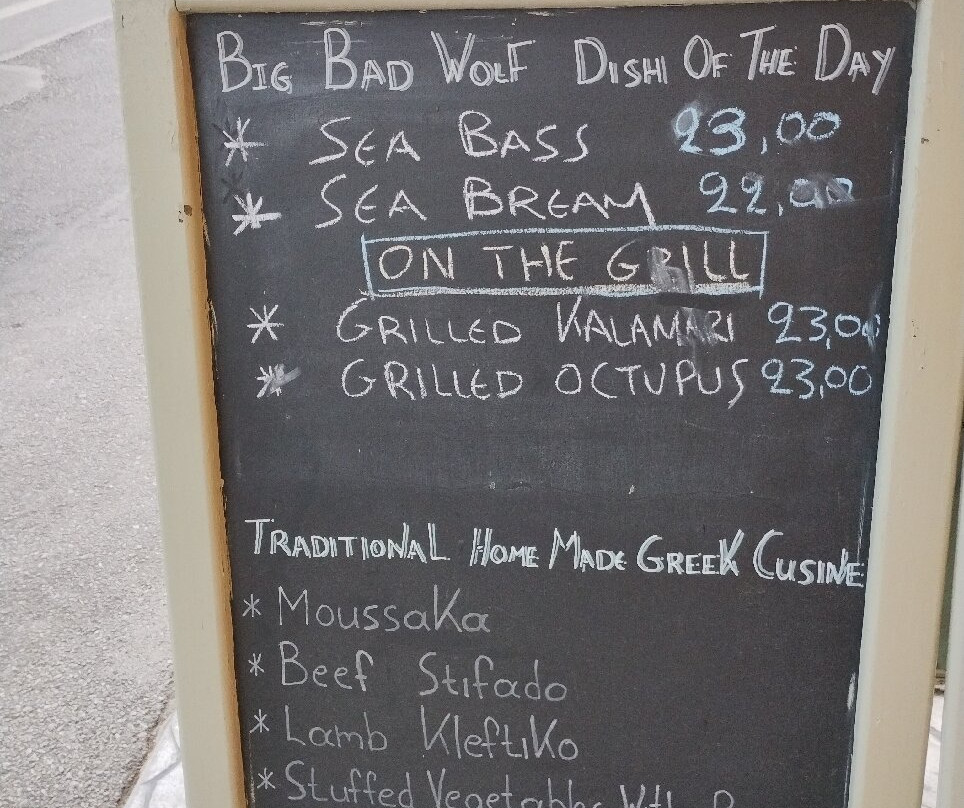 BIG BAD WOLF DISH OF THE DAY
* SEA BASS 23,00
* SEA BREAM 22,00
ON THE GRILL
* GRILLED KALAMARI 23,00
* GRILLED OCTUPUS 23,00
TRADITIONAL HOME MADE GREEK CUSINE
* Moussaka
* Beef Stifado
* Lamb Kleftiko
* Stuffed Vegetables